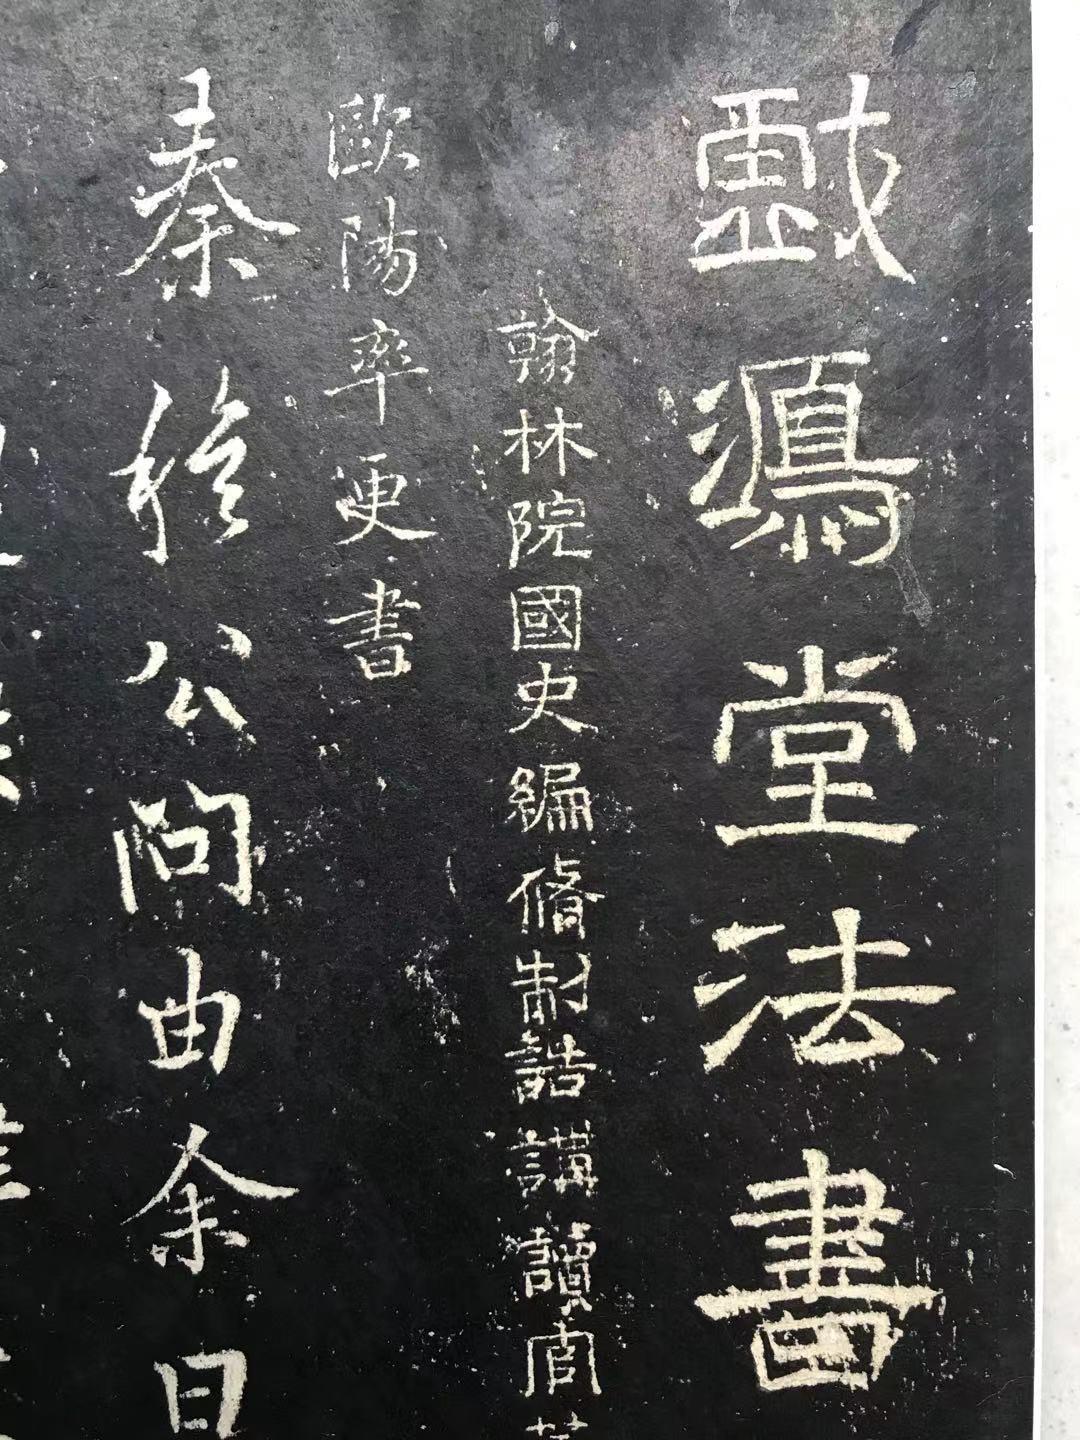 戲鴻堂法書
翰林院國史編脩制誥講讀官
歐陽率更書
秦穆公問由余曰